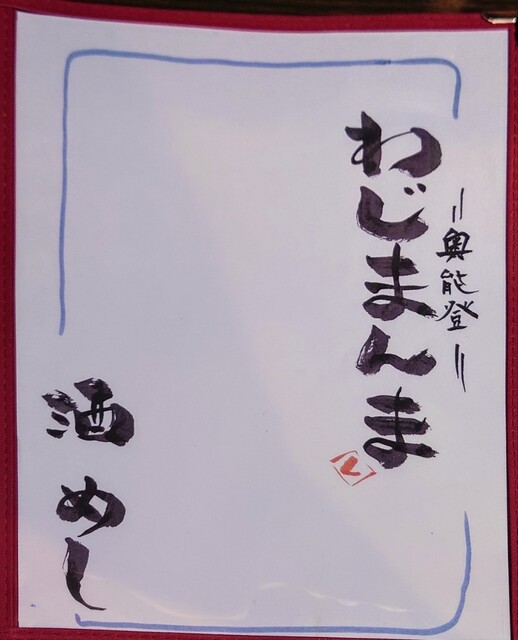 =奥能登=
わじまんま
酒めし